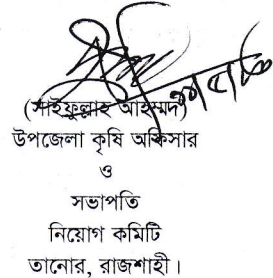 (সাইফুল্লাহ আহম্মদ)
উপজেলা কৃষি অফিসার
ও
সভাপতি
নিয়োগ কমিটি
তানোর, রাজশাহী।